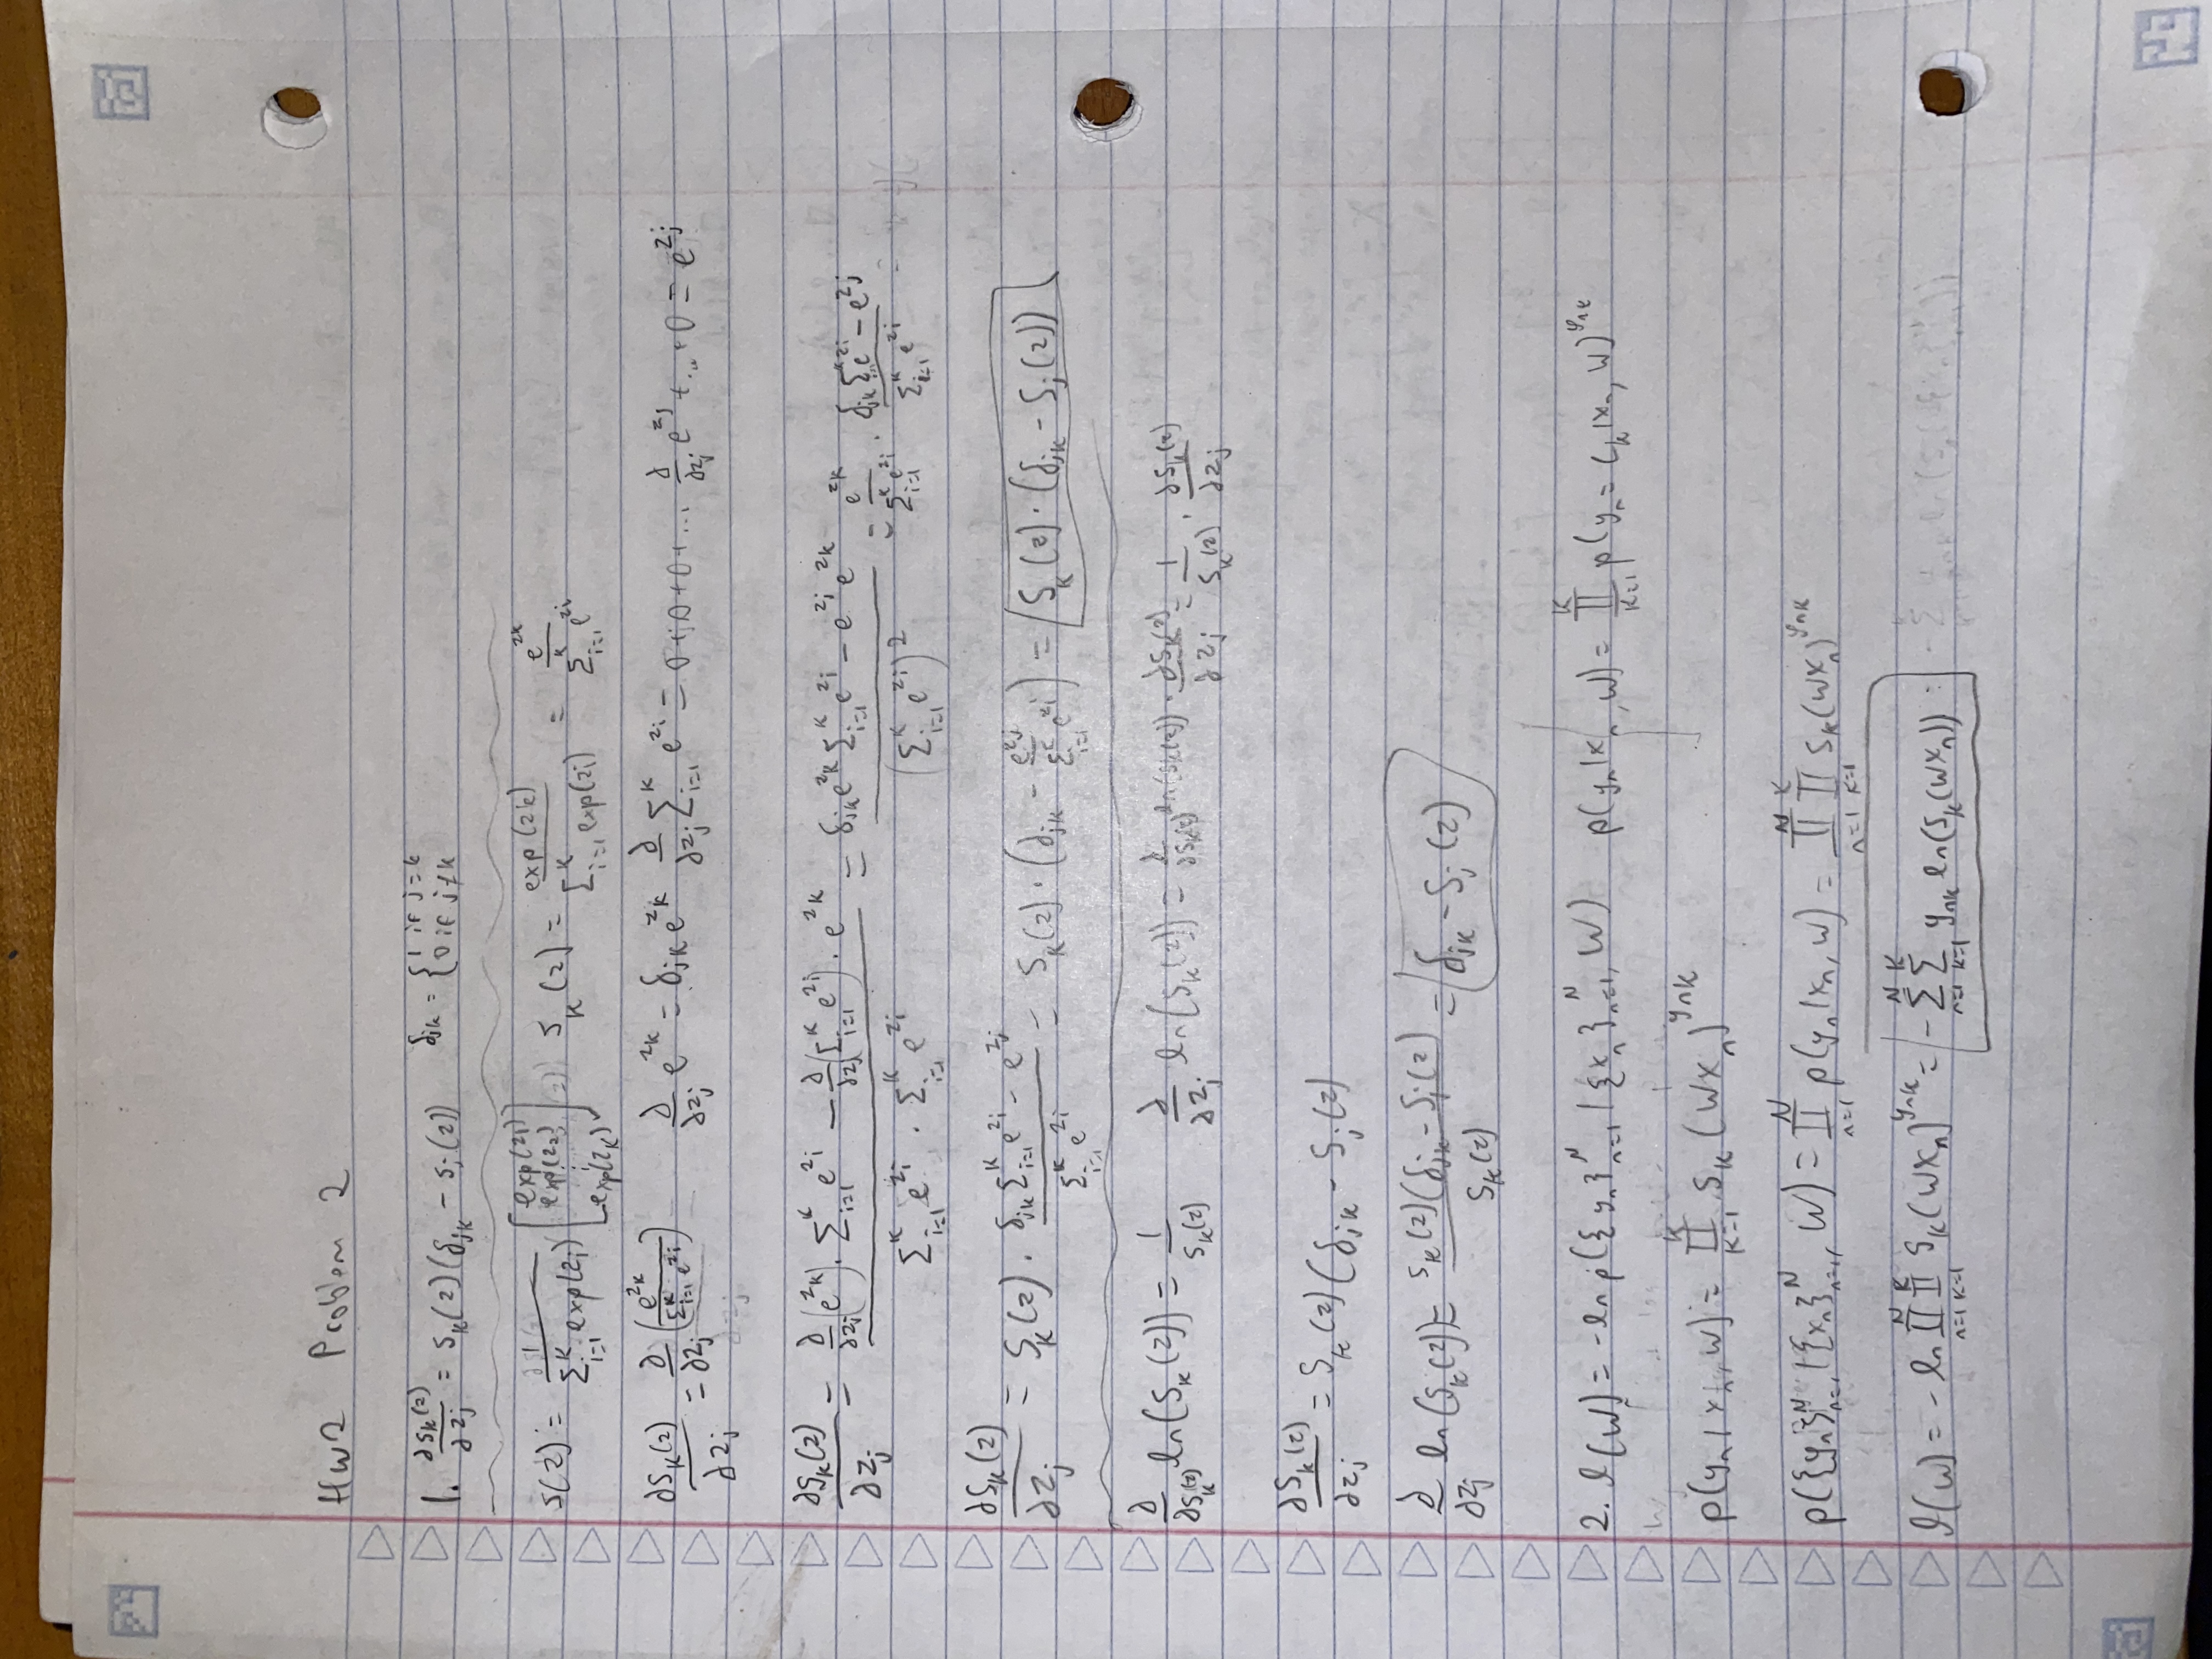 HW2 Problem 2
1. ∂s_k(z)/∂z_j = s_k(z)(δ_jk - s_j(z)) δ_jk = {1 if j=k 0 if j≠k
s(z) = 1/(Σ_{i=1}^K exp(z_i)) [exp(z_1) exp(z_2) ⋮ exp(z_K)] s_k(z) = exp(z_k)/(Σ_{i=1}^K exp(z_i)) = e^{z_k}/(Σ_{i=1}^K e^{z_i})
∂s_k(z)/∂z_j = ∂/∂z_j (e^{z_k}/(Σ_{i=1}^K e^{z_i})) ∂/∂z_j e^{z_k} = δ_jk e^{z_k} ∂/∂z_j Σ_{i=1}^K e^{z_i} = 0+0+0+... ∂/∂z_j e^{z_j} +...+0 = e^{z_j}
∂s_k(z)/∂z_j = (∂/∂z_j(e^{z_k}) · Σ_{i=1}^K e^{z_i} - ∂/∂z_j(Σ_{i=1}^K e^{z_i}) · e^{z_k})/(Σ_{i=1}^K e^{z_i} · Σ_{i=1}^K e^{z_i}) = (δ_jk e^{z_k} Σ_{i=1}^K e^{z_i} - e^{z_j} e^{z_k})/(Σ_{i=1}^K e^{z_i})^2 = e^{z_k}/(Σ_{i=1}^K e^{z_i}) · (δ_jk Σ_{i=1}^K e^{z_i} - e^{z_j})/(Σ_{i=1}^K e^{z_i})
∂s_k(z)/∂z_j = s_k(z) · (δ_jk Σ_{i=1}^K e^{z_i} - e^{z_j})/(Σ_{i=1}^K e^{z_i}) = s_k(z) · (δ_jk - e^{z_j}/(Σ_{i=1}^K e^{z_i})) = s_k(z) · (δ_jk - s_j(z))
∂/∂s_k(z) ln(s_k(z)) = 1/s_k(z) ∂/∂z_j ln(s_k(z)) = ∂/∂s_k(z) ln(s_k(z)) · ∂s_k(z)/∂z_j = 1/s_k(z) · ∂s_k(z)/∂z_j
∂s_k(z)/∂z_j = s_k(z)(δ_jk - s_j(z)
∂/∂z_j ln(s_k(z)) = s_k(z)(δ_jk - s_j(z)/s_k(z) = δ_jk - s_j(z)
2. l(W) = -ln p({y_n}_{n=1}^N | {x_n}_{n=1}^N, W) p(y_n|x_n, W) = ∏_{k=1}^K p(y_n = C_k|x_n, W)^{y_nk}
p(y_n|x_n, W) = ∏_{k=1}^K s_k(Wx_n)^{y_nk}
p({y_n}_{n=1}^N | {x_n}_{n=1}^N, W) = ∏_{n=1}^N p(y_n|x_n, W) = ∏_{n=1}^N ∏_{k=1}^K s_k(Wx_n)^{y_nk}
l(W) = -ln ∏_{n=1}^N ∏_{k=1}^K s_k(Wx_n)^{y_nk} = -Σ_{n=1}^N Σ_{k=1}^K y_nk ln(s_k(Wx_n))